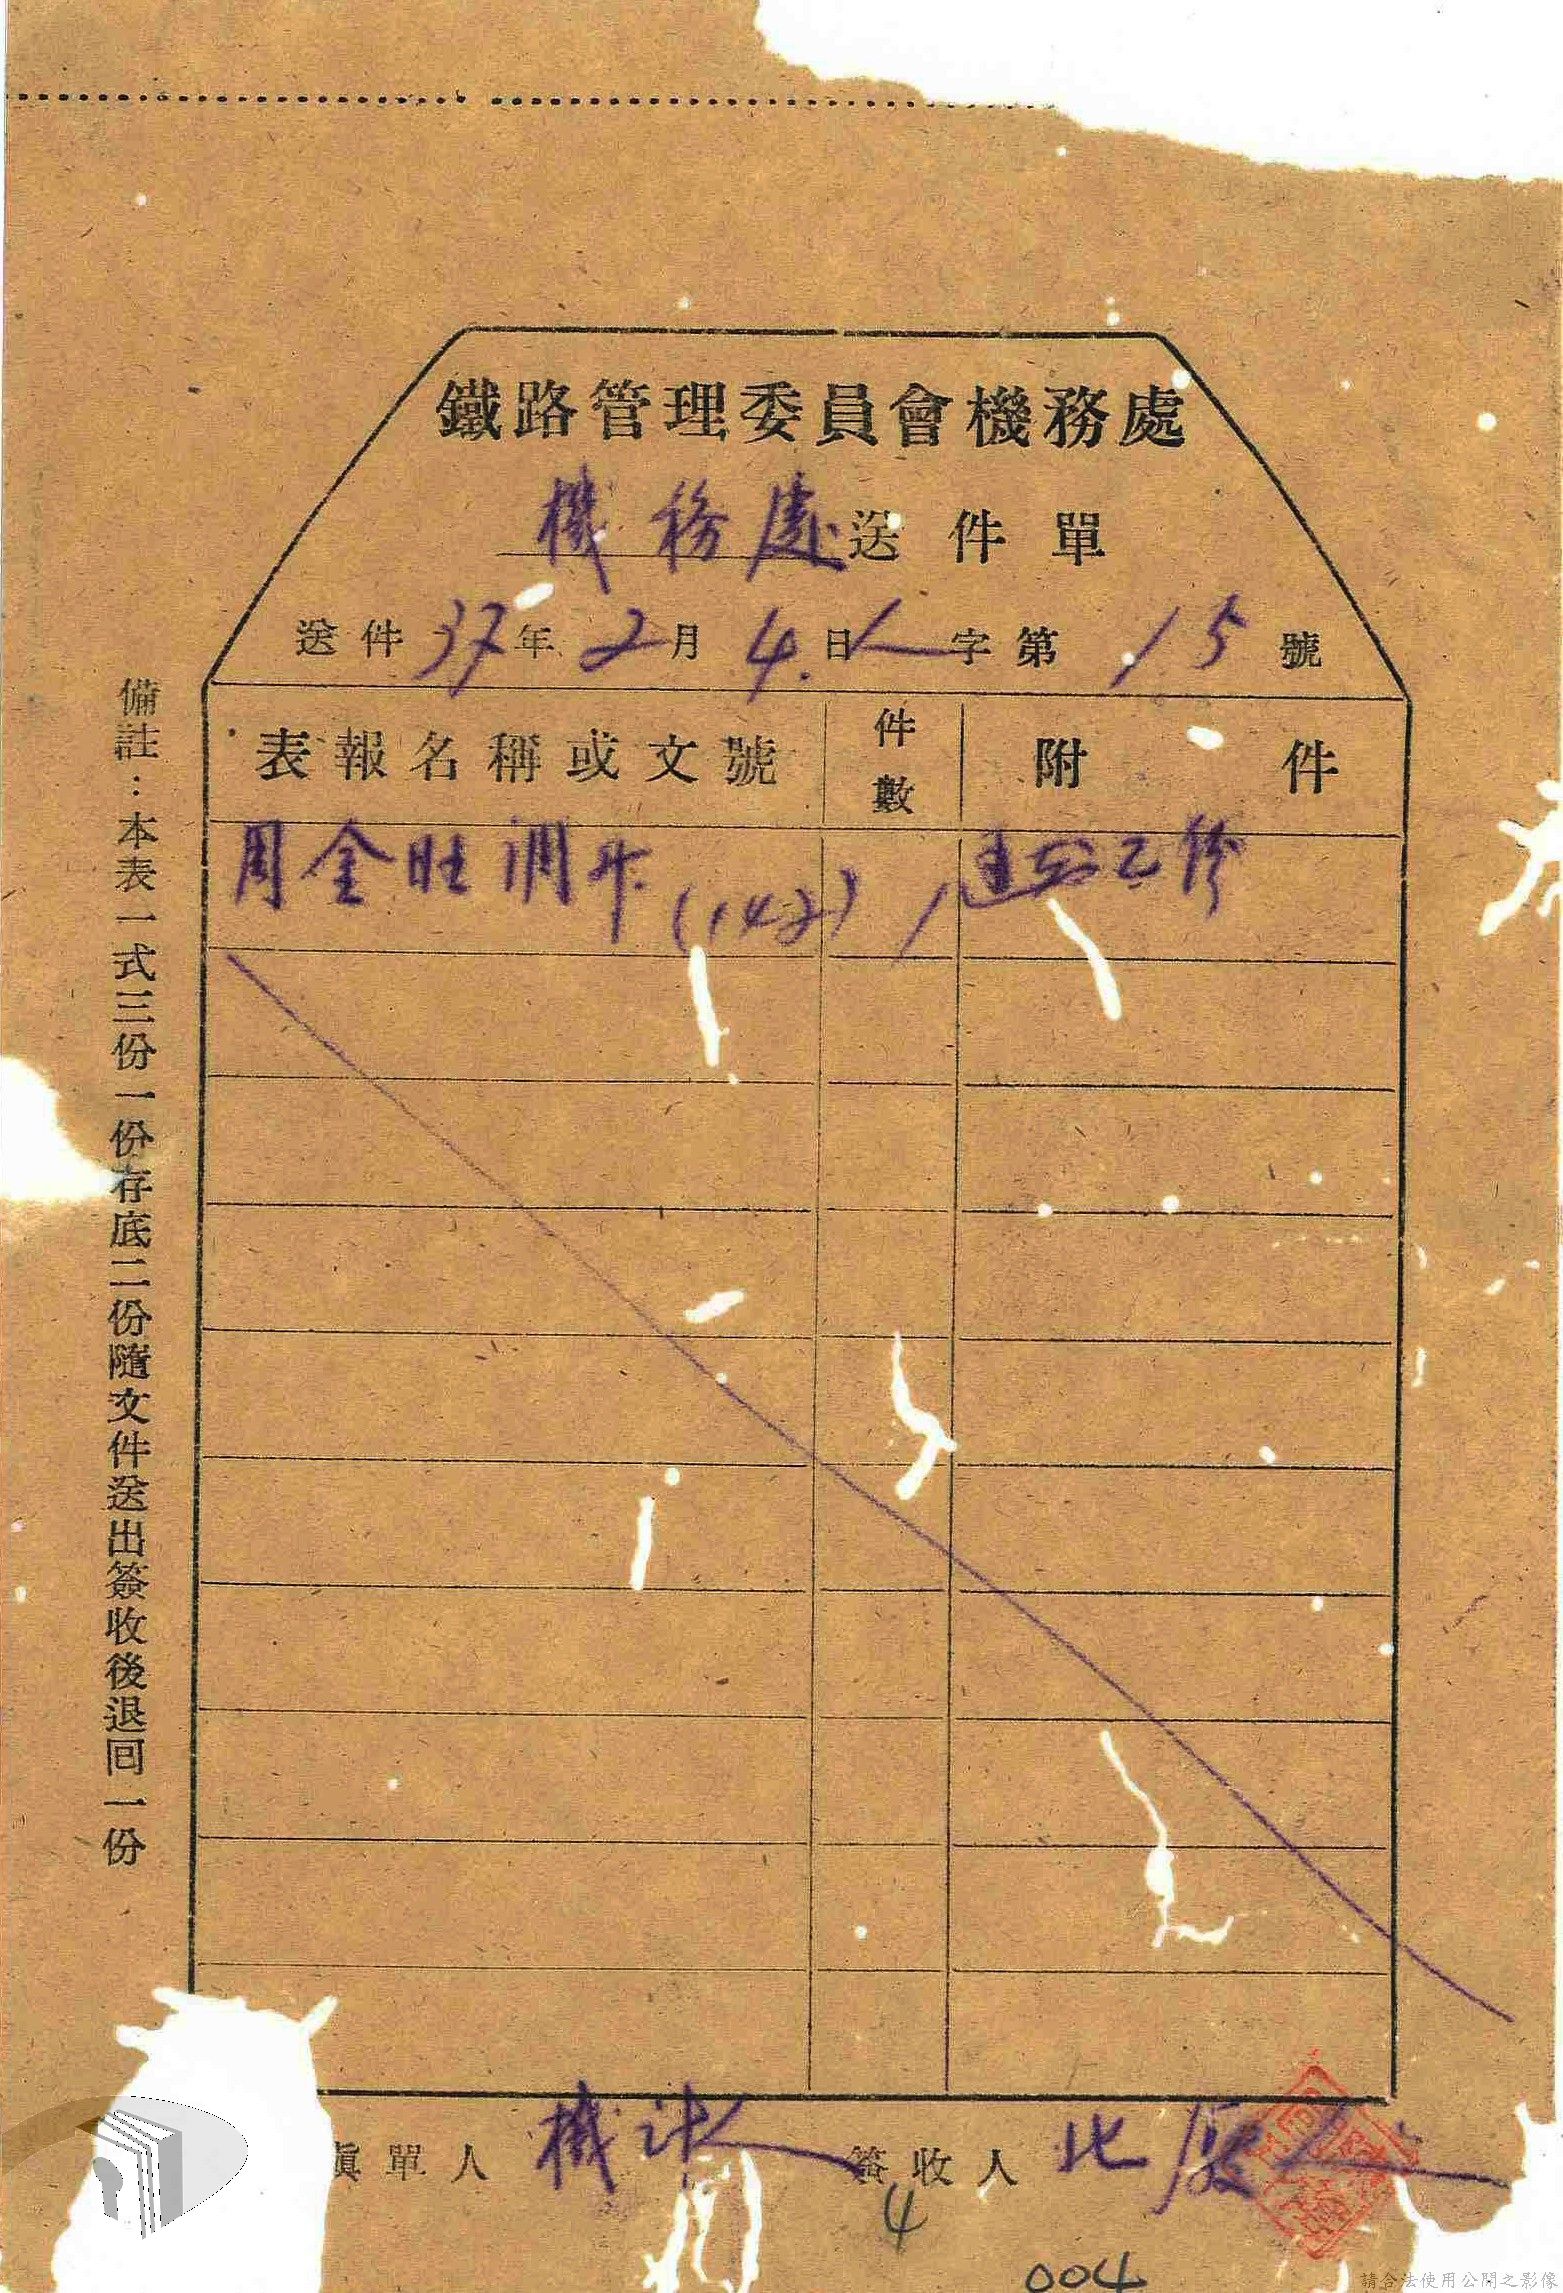 鐵路管理委員會機務處
機務處送件單
送件37年2月4日人字第15號
表報名稱或文號 件數 附件
周金旺調升(142) 1 乙份
備註：本表一式三份一份存底二份隨文件送出簽收後退回一份
填單人 機 人 簽收人 北廠人
4
004
請合法使用公開之影像